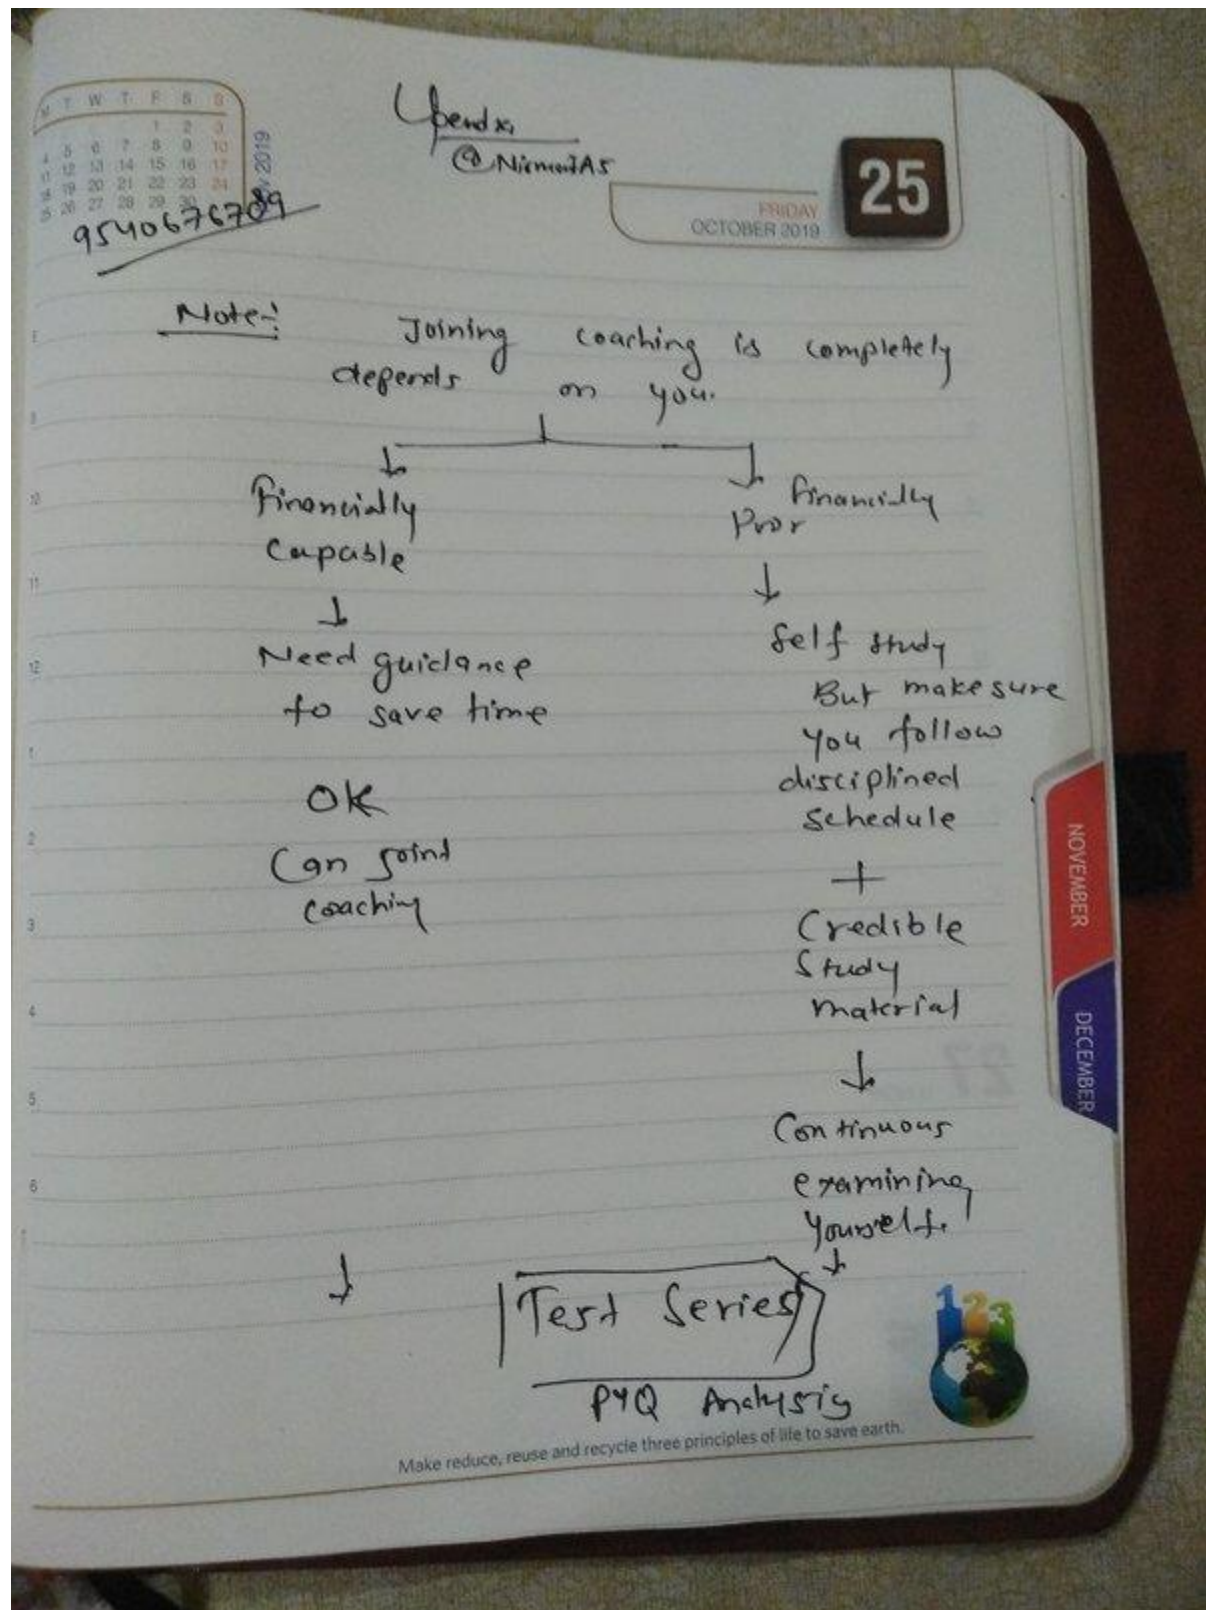 M T W T F S S
1 2 3
4 5 6 7 8 9 10
11 12 13 14 15 16 17
18 19 20 21 22 23 24
25 26 27 28 29 30
2019
Upendra
@NirmanIAS
25
FRIDAY
OCTOBER 2019
Note:-
Joining coaching is completely
depends on you.
Financially
Capable
Need guidance
to save time
OK
Can joint
coaching
financially
Poor
Self study
But make sure
you follow
disciplined
schedule
+
Credible
Study
material
Continuous
examining
yourself.
Test Series
PYQ Analysis
NOVEMBER
DECEMBER
9
10
11
12
1
2
3
4
5
6
123
Make reduce, reuse and recycle three principles of life to save earth.